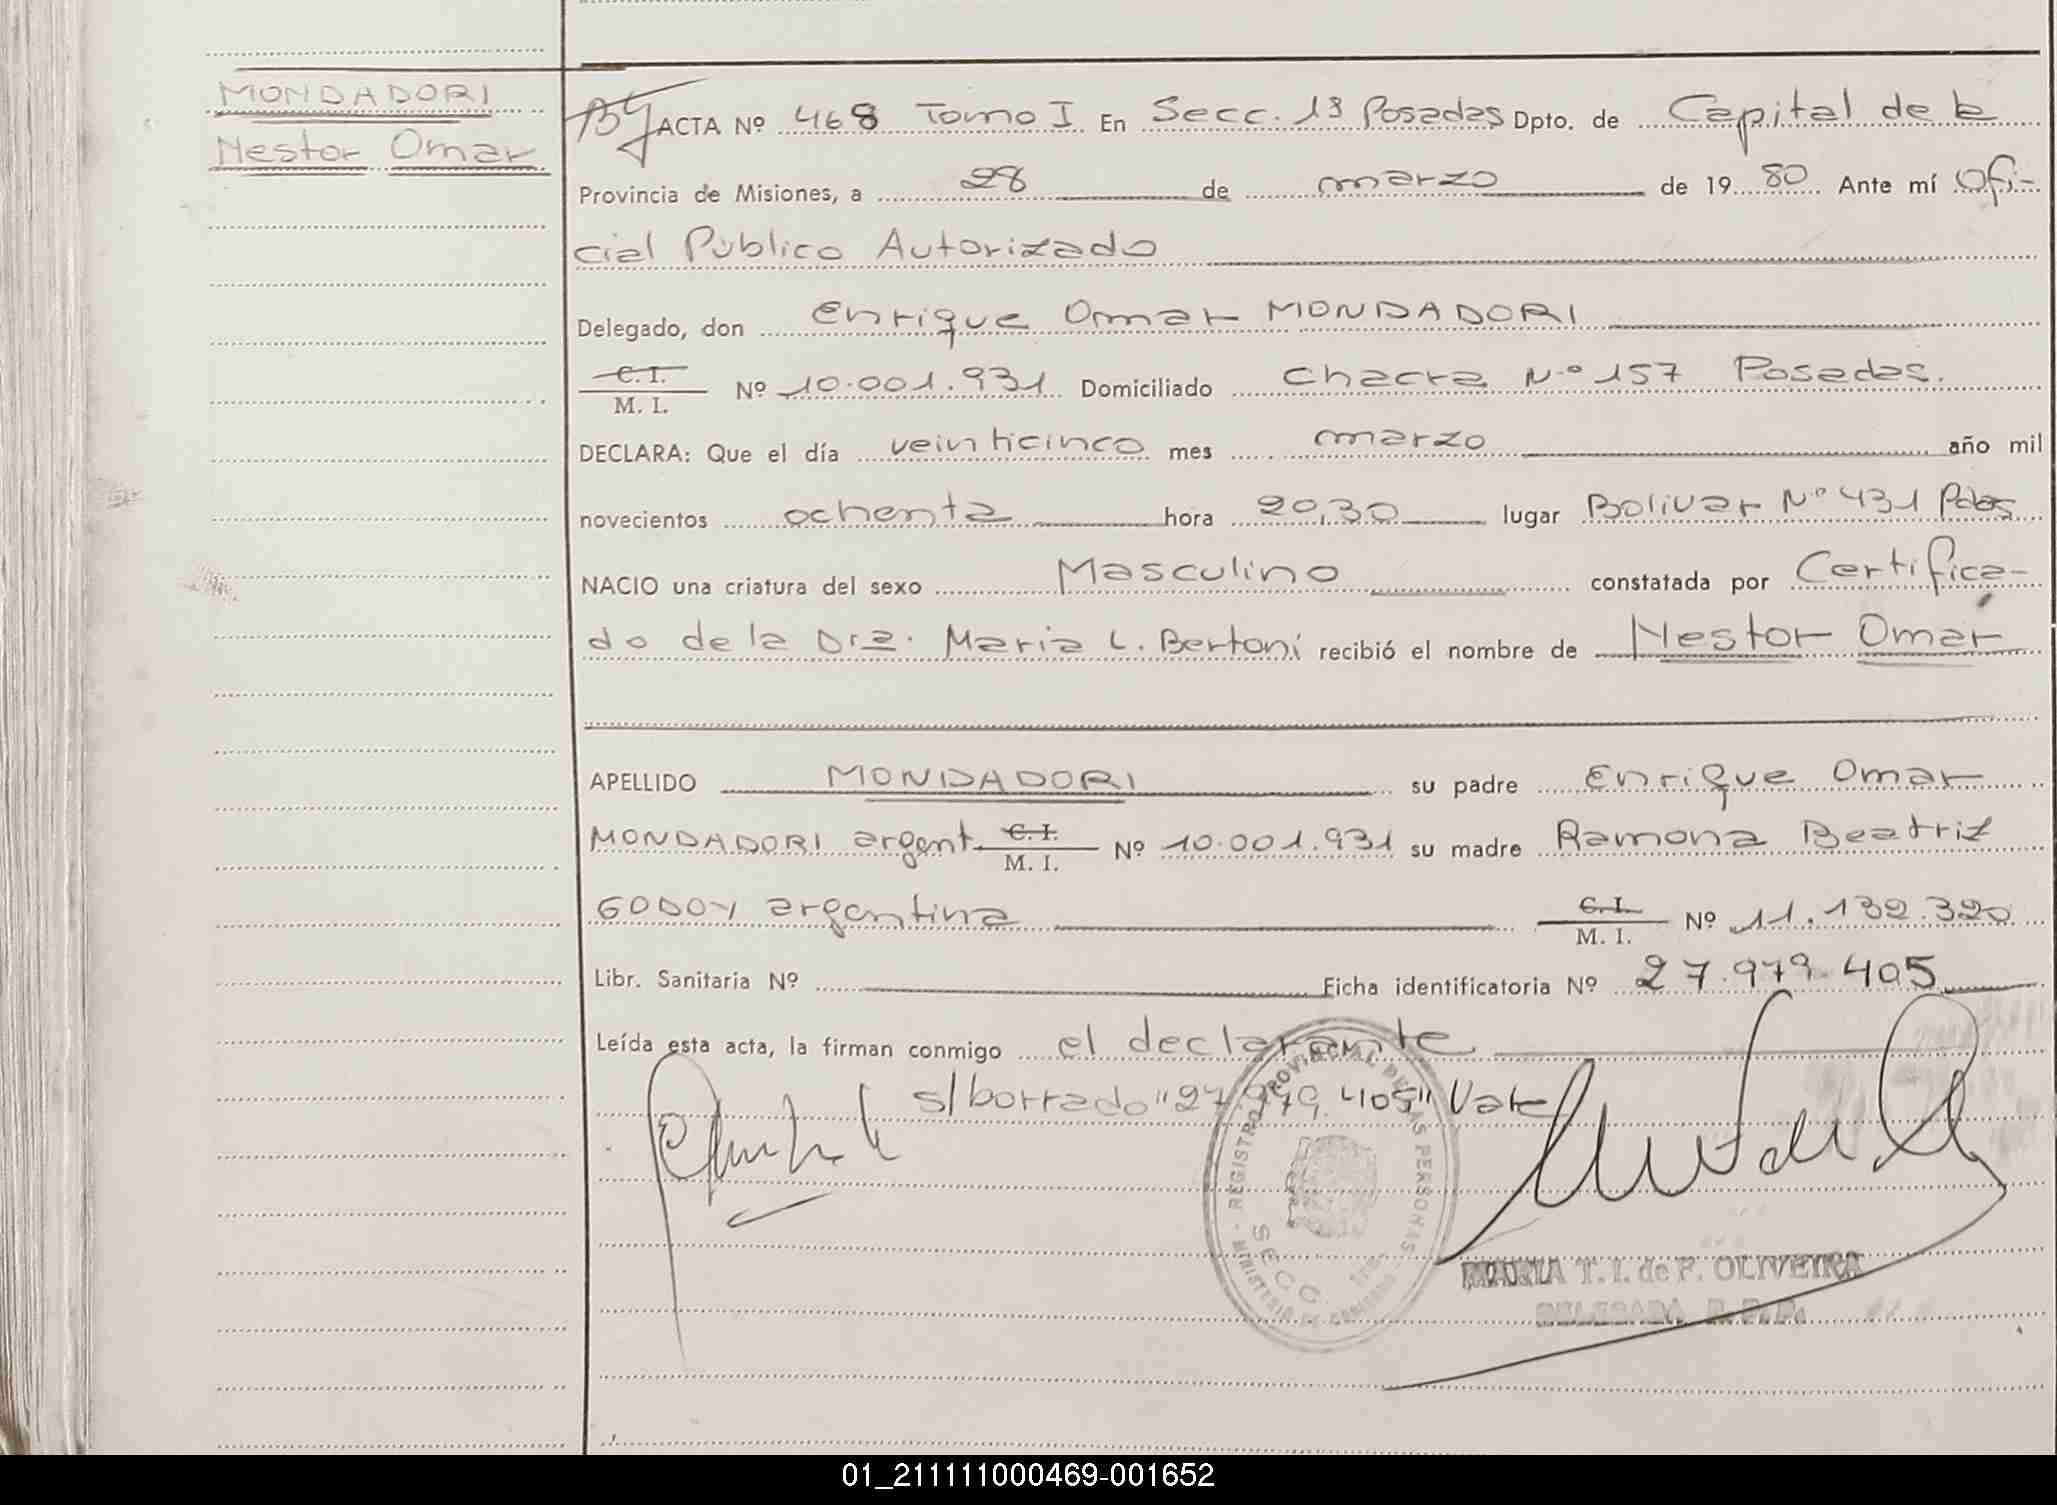 MONDADORI
Nestor Omar
ACTA Nº 468 Tomo I En Secc. 1ª Posadas Dpto. de Capital de la
Provincia de Misiones, a 28 de marzo de 1980 Ante mí Ofi-
cial Público Autorizado
Delegado, don Enrique Omar MONDADORI
C. I.
M. I. Nº 10.001.931 Domiciliado Chacra Nº 157 Posadas.
DECLARA: Que el día veinticinco mes marzo año mil
novecientos ochenta hora 20,30 lugar Bolivar Nº 431 Pdas
NACIO una criatura del sexo Masculino constatada por Certifica-
do de la Dra. Maria L. Bertoni recibió el nombre de Nestor Omar
APELLIDO MONDADORI su padre Enrique Omar
MONDADORI argent. C. I. M. I. Nº 10.001.931 su madre Ramona Beatriz
GODOY argentina C. I. M. I. Nº 11.132.320
Libr. Sanitaria Nº Ficha identificatoria Nº 27.979.405
Leída esta acta, la firman conmigo el declarante
s/borrado "27.979.405" Vale
REGISTRO PROVINCIAL DE LAS PERSONAS
MINISTERIO DE GOBIERNO
SECC. 1ra.
MARIA T. I. de F. OLIVEIRA
DELEGADA R. P. P.
01_211111000469-001652